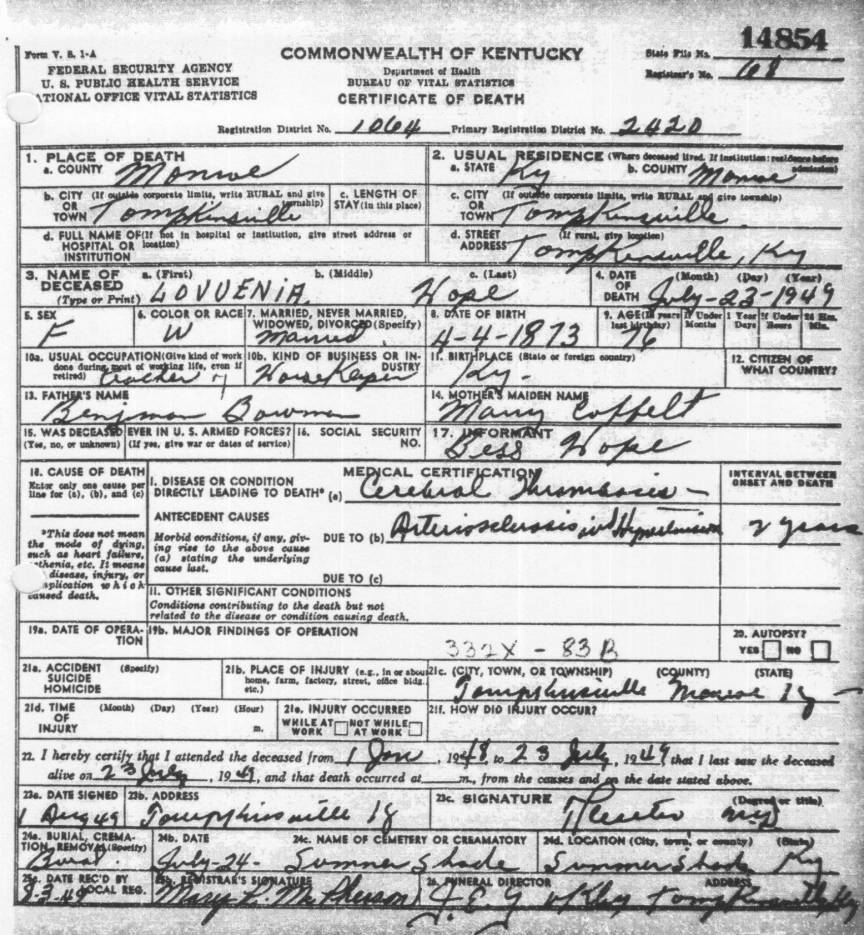 14854
Form V. S. 1-A
COMMONWEALTH OF KENTUCKY
State File No.
FEDERAL SECURITY AGENCY
Department of Health
Registrar's No. 68
U. S. PUBLIC HEALTH SERVICE
BUREAU OF VITAL STATISTICS
ATIONAL OFFICE VITAL STATISTICS
CERTIFICATE OF DEATH
Registration District No. 1064 Primary Registration District No. 2420
1. PLACE OF DEATH
a. COUNTY Monroe
2. USUAL RESIDENCE (Where deceased lived. If institution: residence before admission)
a. STATE Ky b. COUNTY Monroe
b. CITY OR TOWN (If outside corporate limits, write RURAL and give township) Tompkinsville
c. LENGTH OF STAY (in this place)
c. CITY OR TOWN (If outside corporate limits, write RURAL and give township) Tompkinsville
d. FULL NAME OF HOSPITAL OR INSTITUTION (If not in hospital or institution, give street address or location)
d. STREET ADDRESS (If rural, give location) Tompkinsville, Ky
3. NAME OF DECEASED (Type or Print) a. (First) LOVUENIA b. (Middle) c. (Last) Hope
4. DATE OF DEATH (Month) (Day) (Year) July-23-1949
5. SEX F
6. COLOR OR RACE W
7. MARRIED, NEVER MARRIED, WIDOWED, DIVORCED (Specify) Married
8. DATE OF BIRTH 4-4-1873
9. AGE (In years last birthday) 76 If Under 1 Year Months Days If Under 24 Hrs. Hours Min.
10a. USUAL OCCUPATION (Give kind of work done during most of working life, even if retired)
10b. KIND OF BUSINESS OR INDUSTRY House Keeper
11. BIRTHPLACE (State or foreign country) Ky-
12. CITIZEN OF WHAT COUNTRY?
13. FATHER'S NAME Benjman Bowman
14. MOTHER'S MAIDEN NAME Mary Coffelt
15. WAS DECEASED EVER IN U. S. ARMED FORCES? (Yes, no, or unknown) (If yes, give war or dates of service)
16. SOCIAL SECURITY NO.
17. INFORMANT Bess Hope
18. CAUSE OF DEATH
Enter only one cause per line for (a), (b), and (c)
MEDICAL CERTIFICATION
INTERVAL BETWEEN ONSET AND DEATH
I. DISEASE OR CONDITION DIRECTLY LEADING TO DEATH* (a) Cerebral Thrombosis -
*This does not mean the mode of dying, such as heart failure, asthenia, etc. It means disease, injury, or complication which caused death.
ANTECEDENT CAUSES
Morbid conditions, if any, giving rise to the above cause (a) stating the underlying cause last.
DUE TO (b) Arteriosclerosis and Hypertension 2 years
DUE TO (c)
II. OTHER SIGNIFICANT CONDITIONS
Conditions contributing to the death but not related to the disease or condition causing death.
19a. DATE OF OPERATION
19b. MAJOR FINDINGS OF OPERATION
332X - 83B
20. AUTOPSY? YES NO
21a. ACCIDENT SUICIDE HOMICIDE (Specify)
21b. PLACE OF INJURY (e.g., in or about home, farm, factory, street, office bldg., etc.)
21c. (CITY, TOWN, OR TOWNSHIP) (COUNTY) (STATE) Tompkinsville Monroe Ky -
21d. TIME OF INJURY (Month) (Day) (Year) (Hour) m.
21e. INJURY OCCURRED WHILE AT WORK NOT WHILE AT WORK
21f. HOW DID INJURY OCCUR?
22. I hereby certify that I attended the deceased from 1 Jan, 1948 to 23 July, 1949 that I last saw the deceased
alive on 23 July, 1949, and that death occurred at m., from the causes and on the date stated above.
23a. DATE SIGNED 1 Aug 49
23b. ADDRESS Tompkinsville Ky
23c. SIGNATURE (Degree or title) MD
24a. BURIAL, CREMATION, REMOVAL (Specify) Burial
24b. DATE July-24-
24c. NAME OF CEMETERY OR CREAMATORY Summer Shade
24d. LOCATION (City, town, or county) (State) Summer Shade Ky
25a. DATE REC'D BY LOCAL REG. 8-3-49
25b. REGISTRAR'S SIGNATURE Mary L. McPherson
26. FUNERAL DIRECTOR ADDRESS Tompkinsville, Ky